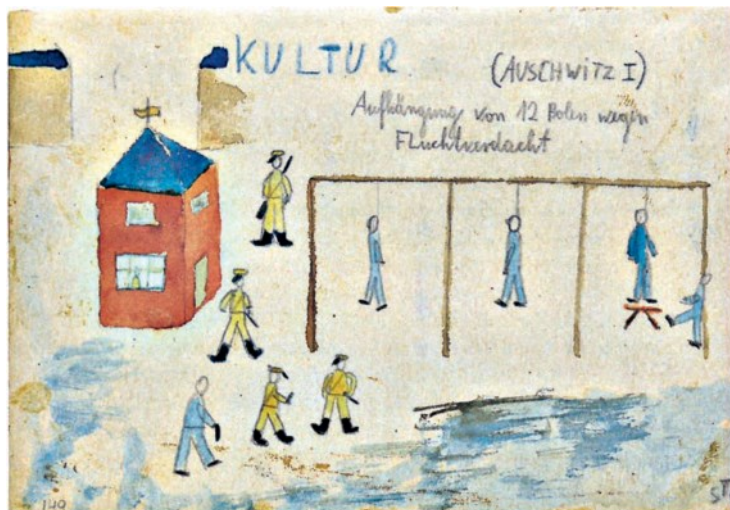 KULTUR (AUSCHWITZ I)
Aufhängung von 12 Polen wegen
Fluchtverdacht